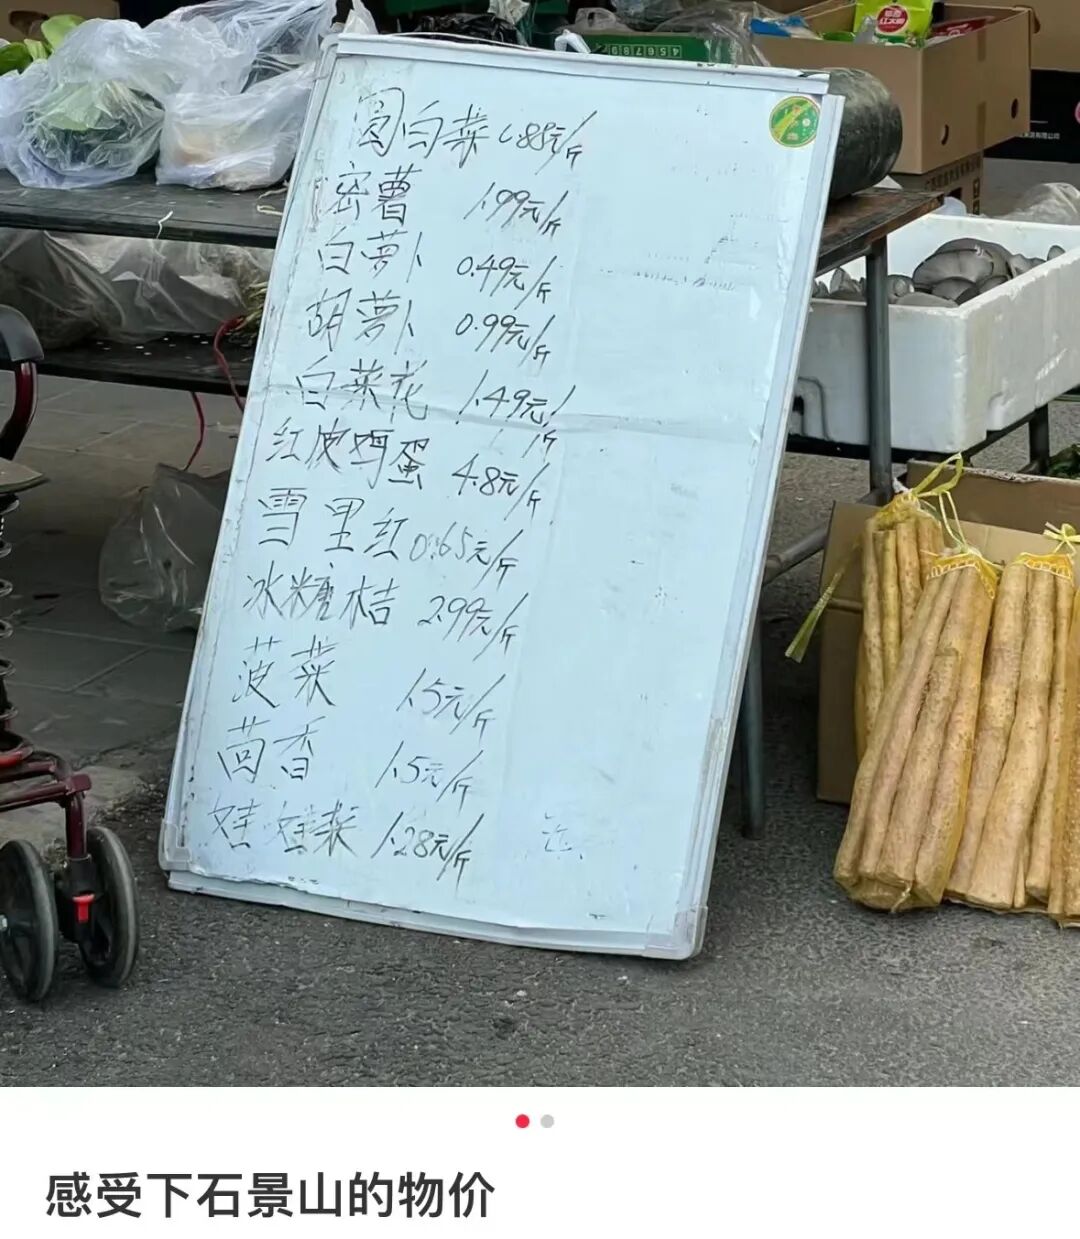 圆白菜 1.88元/斤
密薯 1.99元/斤
白萝卜 0.49元/斤
胡萝卜 0.99元/斤
白菜花 1.49元/斤
红皮鸡蛋 4.8元/斤
雪里红 0.65元/斤
冰糖桔 2.99元/斤
菠菜 1.5元/斤
茴香 1.5元/斤
娃娃菜 1.28元/斤
感受下石景山的物价